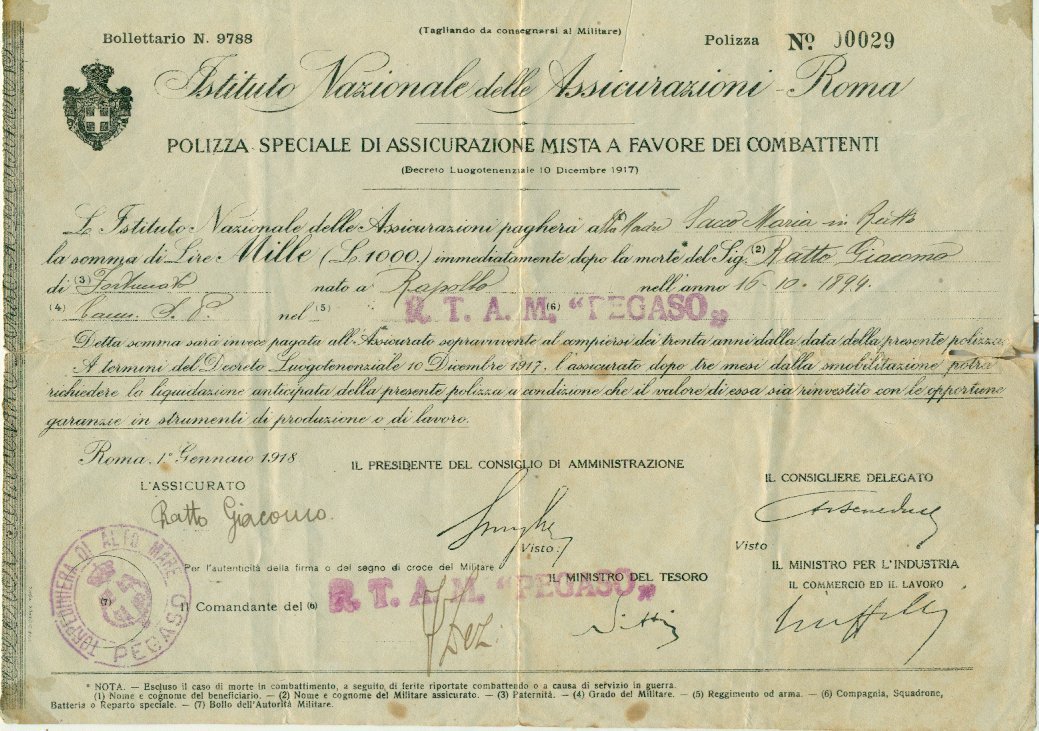 Bollettario N. 9788
(Tagliando da consegnarsi al Militare)
Polizza Nº 00029
Istituto Nazionale delle Assicurazioni - Roma
POLIZZA SPECIALE DI ASSICURAZIONE MISTA A FAVORE DEI COMBATTENTI
(Decreto Luogotenenziale 10 Dicembre 1917)
L'Istituto Nazionale delle Assicurazioni pagherà alla Madre Sacco Maria in Ratto
la somma di Lire Mille (L. 1000.) immediatamente dopo la morte* del Sig. (2) Ratto Giacomo
di (3) nato a Rapallo nell'anno 16-10-1894.
(4) Cann. S. P. nel (5) R. T. A. M. (6) "PEGASO"
Detta somma sarà invece pagata all'Assicurato sopravvivente al compiersi dei trenta anni dalla data della presente polizza.
A termini del Decreto Luogotenenziale 10 Dicembre 1917, l'assicurato dopo tre mesi dalla smobilitazione potrà
richiedere la liquidazione anticipata della presente polizza a condizione che il valore di essa sia rinvestito con le opportune
garanzie in strumenti di produzione o di lavoro.
Roma, 1º Gennaio 1918.
IL PRESIDENTE DEL CONSIGLIO DI AMMINISTRAZIONE
IL CONSIGLIERE DELEGATO
L'ASSICURATO
Ratto Giacomo.
Visto:
Visto
Per l'autenticità della firma o del segno di croce del Militare
IL MINISTRO DEL TESORO
IL MINISTRO PER L'INDUSTRIA
IL COMMERCIO ED IL LAVORO
Il Comandante del (6) R. T. A. M. "PEGASO"
Nitti
TORPEDINIERA DI ALTO MARE PEGASO
(7)
* NOTA. — Escluso il caso di morte in combattimento, a seguito di ferite riportate combattendo o a causa di servizio in guerra.
(1) Nome e cognome del beneficiario. — (2) Nome e cognome del Militare assicurato. — (3) Paternità. — (4) Grado del Militare. — (5) Reggimento od arma. — (6) Compagnia, Squadrone,
Batteria o Reparto speciale. — (7) Bollo dell'Autorità Militare.